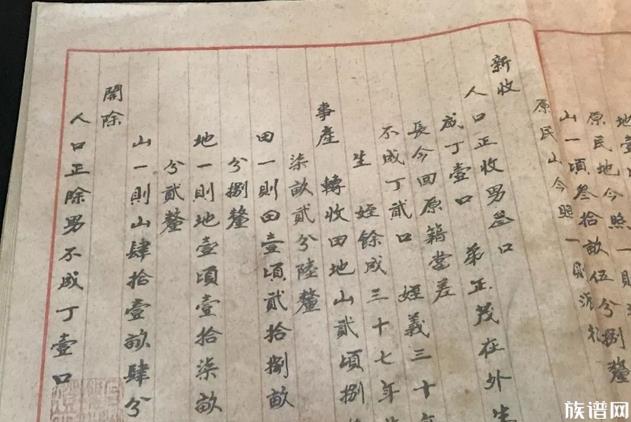 地壹頃
原民地今照一則
山一頃叁拾畝伍分捌釐
原民山今照一則
新收
人口正收男叁口
成丁壹口 弟正茂在外生
長今回原籍當差
不成丁貳口 姪義三十
生 姪餘成三十七年
事產 轉收田地山貳頃捌
柒畝貳分陸釐
田一則田壹頃貳拾捌畝
分捌釐
地一則地壹頃壹拾柒畝
分貳釐
山一則山肆拾壹畝肆分
開除
人口正除男不成丁壹口
族谱网